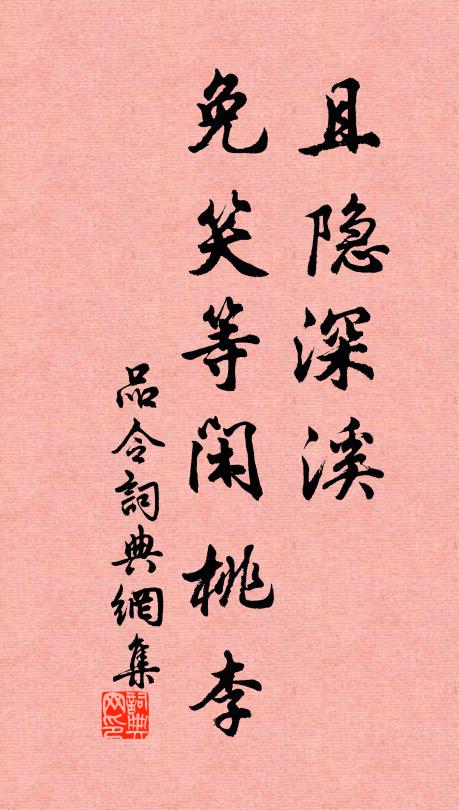 且隐深溪
免笑等闲桃李
品令詞典網集
詞典网印